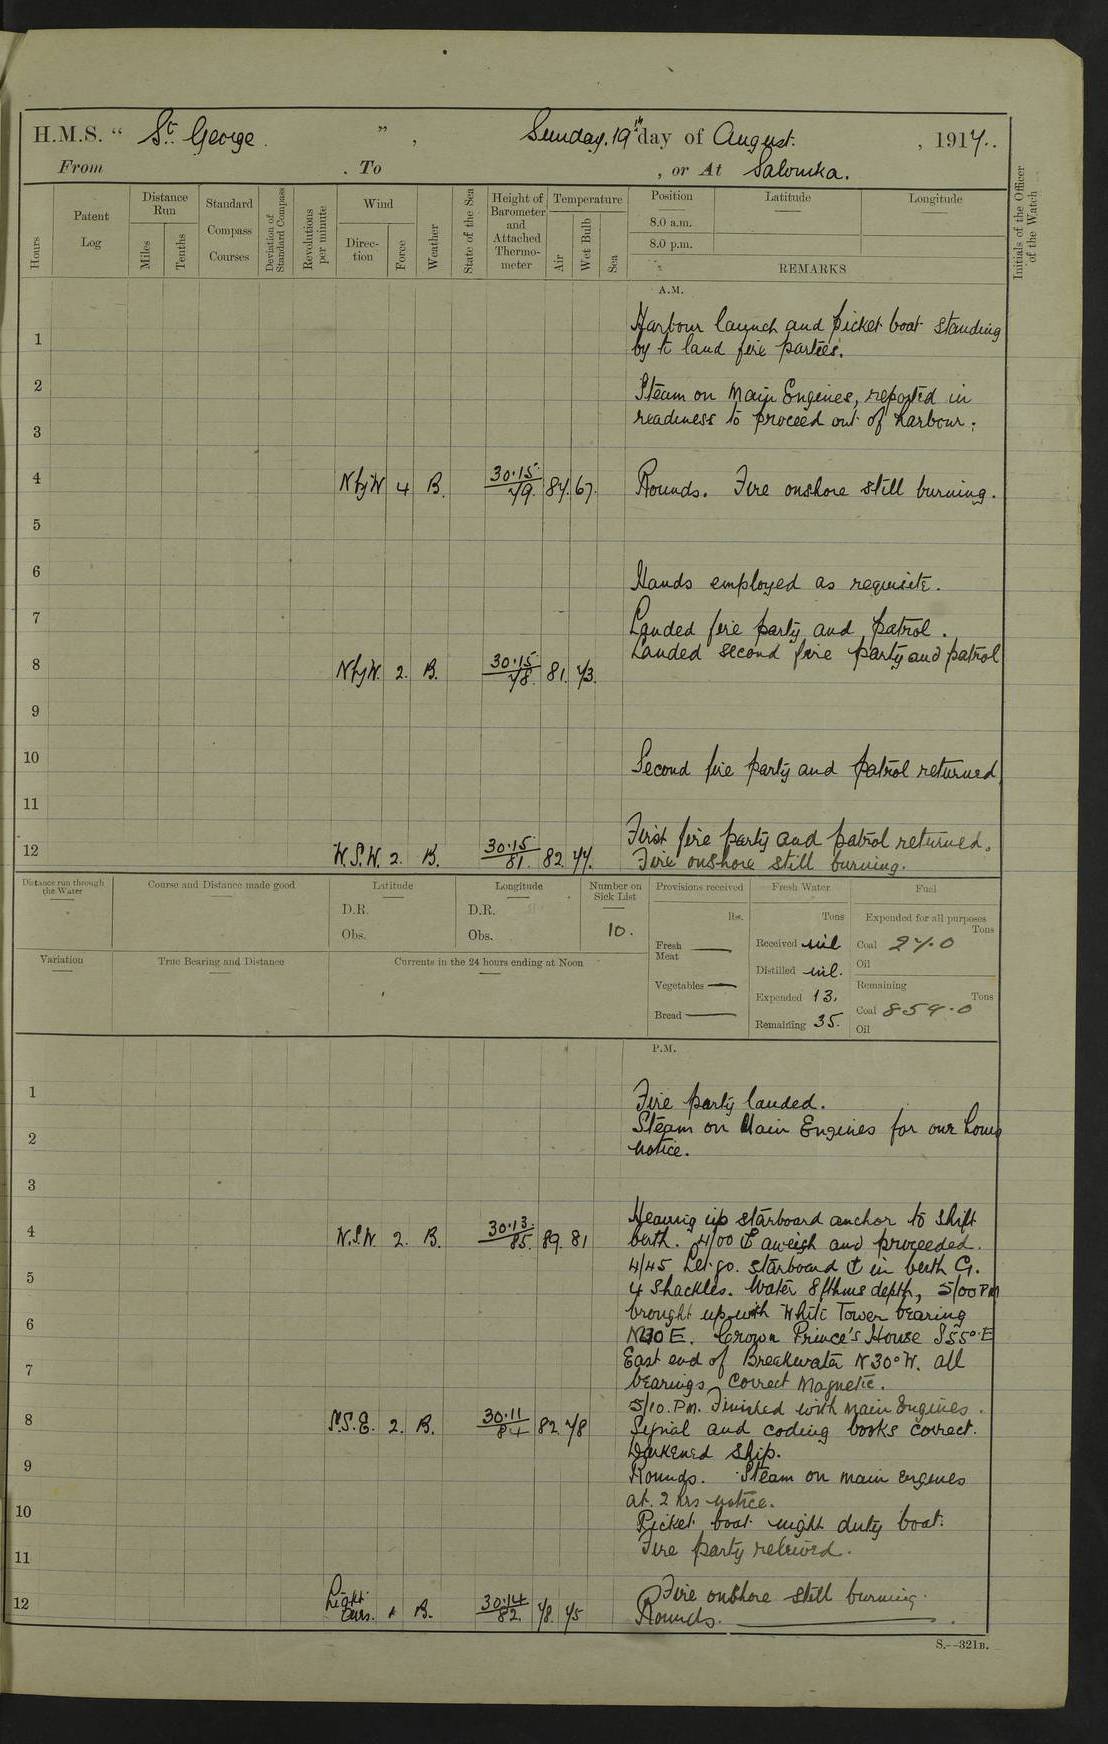 H.M.S. “ St. George. ”, Sunday, 19th day of August. , 1917..
From . To , or At Salonika.
Hours
Patent Log
Distance Run
Miles
Tenths
Standard Compass Courses
Deviation of Standard Compass
Revolutions per minute
Wind
Direc-tion
Force
Weather
State of the Sea
Height of Barometer and Attached Thermo-meter
Temperature
Air
Wet Bulb
Sea
Position
8.0 a.m.
8.0 p.m.
Latitude
Longitude
REMARKS
Initials of the Officer of the Watch
A.M.
Harbour launch and picket boat standing
1
by to land fire parties.
2
Steam on Main Engines, reported in
readiness to proceed out of harbour.
3
4 N by W 4 B. 30.15/79. 84. 67. Rounds. Fire onshore still burning.
5
6
Hands employed as requisite.
7
Landed fire party and patrol.
Landed second fire party and patrol
8 N by W. 2. B. 30.15/78. 81. 73.
9
10
Second fire party and patrol returned.
11
First fire party and patrol returned.
12 W.S.W. 2. B. 30.15/81. 82. 77. Fire onshore still burning.
Distance run through the Water
Course and Distance made good
Latitude
D.R.
Obs.
Longitude
D.R.
Obs.
Number on Sick List
10.
Provisions received
lbs.
Fresh Meat
Vegetables
Bread
Fresh Water
Tons
Received nil
Distilled nil.
Expended 13.
Remaining 35.
Fuel
Expended for all purposes
Tons
Coal 27.0
Oil
Remaining
Tons
Coal 859.0
Oil
Variation
True Bearing and Distance
Currents in the 24 hours ending at Noon
P.M.
1
Fire party landed.
Steam on Main Engines for one hours
2
notice.
3
Heaving up starboard anchor to shift
4 W.S.W. 2. B. 30.13/85. 89. 81 berth. 4/00 ⚓ aweigh and proceeded.
4/45 Let go. starboard ⚓ in berth G.
5
4 shackles. Water 8 fthms depth, 5/00 PM
brought up with White Tower bearing
6
N30E. Crown Prince's House S55°E
East end of Breakwater N30°W. all
7
bearings correct magnetic.
5/10. P.M. Finished with Main Engines.
8 S.S.E. 2. B. 30.11/84 82 78 Signal and coding books correct.
Darkened Ship.
9
Rounds. Steam on main engines
at 2 hrs notice.
10
Picket boat night duty boat.
11
Fire party relieved.
Fire onshore still burning.
12 Light airs. 1 B. 30.14/82. 78. 75 Rounds.
S.--321B.